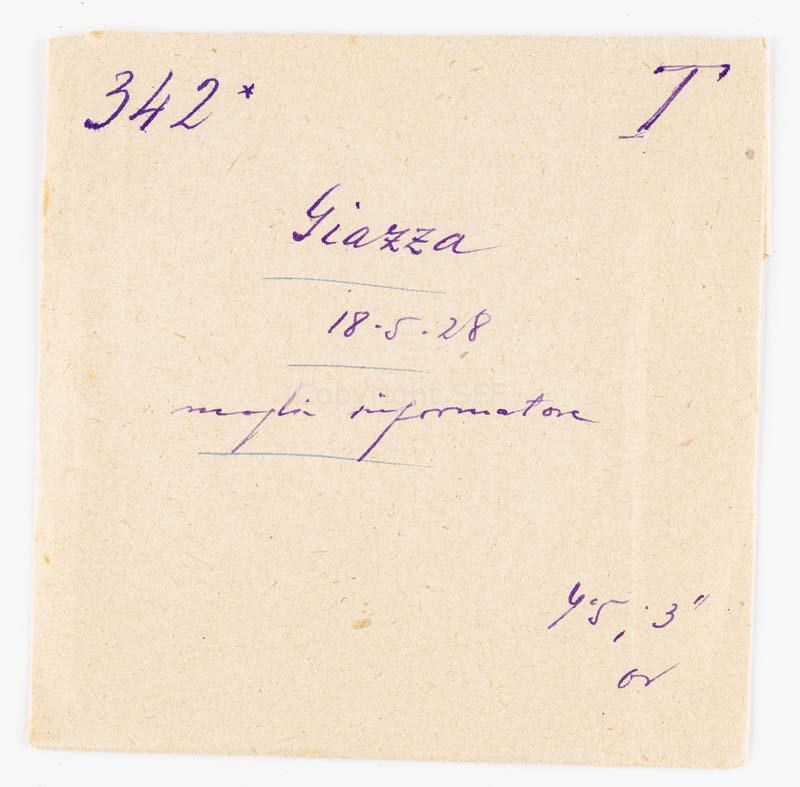 342* T
Giazza
18·5·28
moglie informatore
4·5, 3"
or